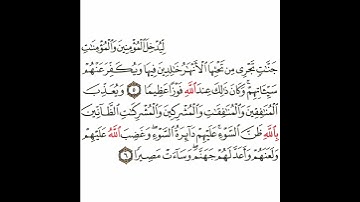 لِّيُدْخِلَ الْمُؤْمِنِينَ وَالْمُؤْمِنَاتِ
جَنَّاتٍ تَجْرِي مِن تَحْتِهَا الْأَنْهَارُ خَالِدِينَ فِيهَا وَيُكَفِّرَ عَنْهُمْ
سَيِّئَاتِهِمْ ۚ وَكَانَ ذَٰلِكَ عِندَ اللَّهِ فَوْزًا عَظِيمًا ٥ وَيُعَذِّبَ
الْمُنَافِقِينَ وَالْمُنَافِقَاتِ وَالْمُشْرِكِينَ وَالْمُشْرِكَاتِ الظَّانِّينَ
بِاللَّهِ ظَنَّ السَّوْءِ ۚ عَلَيْهِمْ دَائِرَةُ السَّوْءِ ۖ وَغَضِبَ اللَّهُ عَلَيْهِمْ
وَلَعَنَهُمْ وَأَعَدَّ لَهُمْ جَهَنَّمَ ۖ وَسَاءَتْ مَصِيرًا ٦